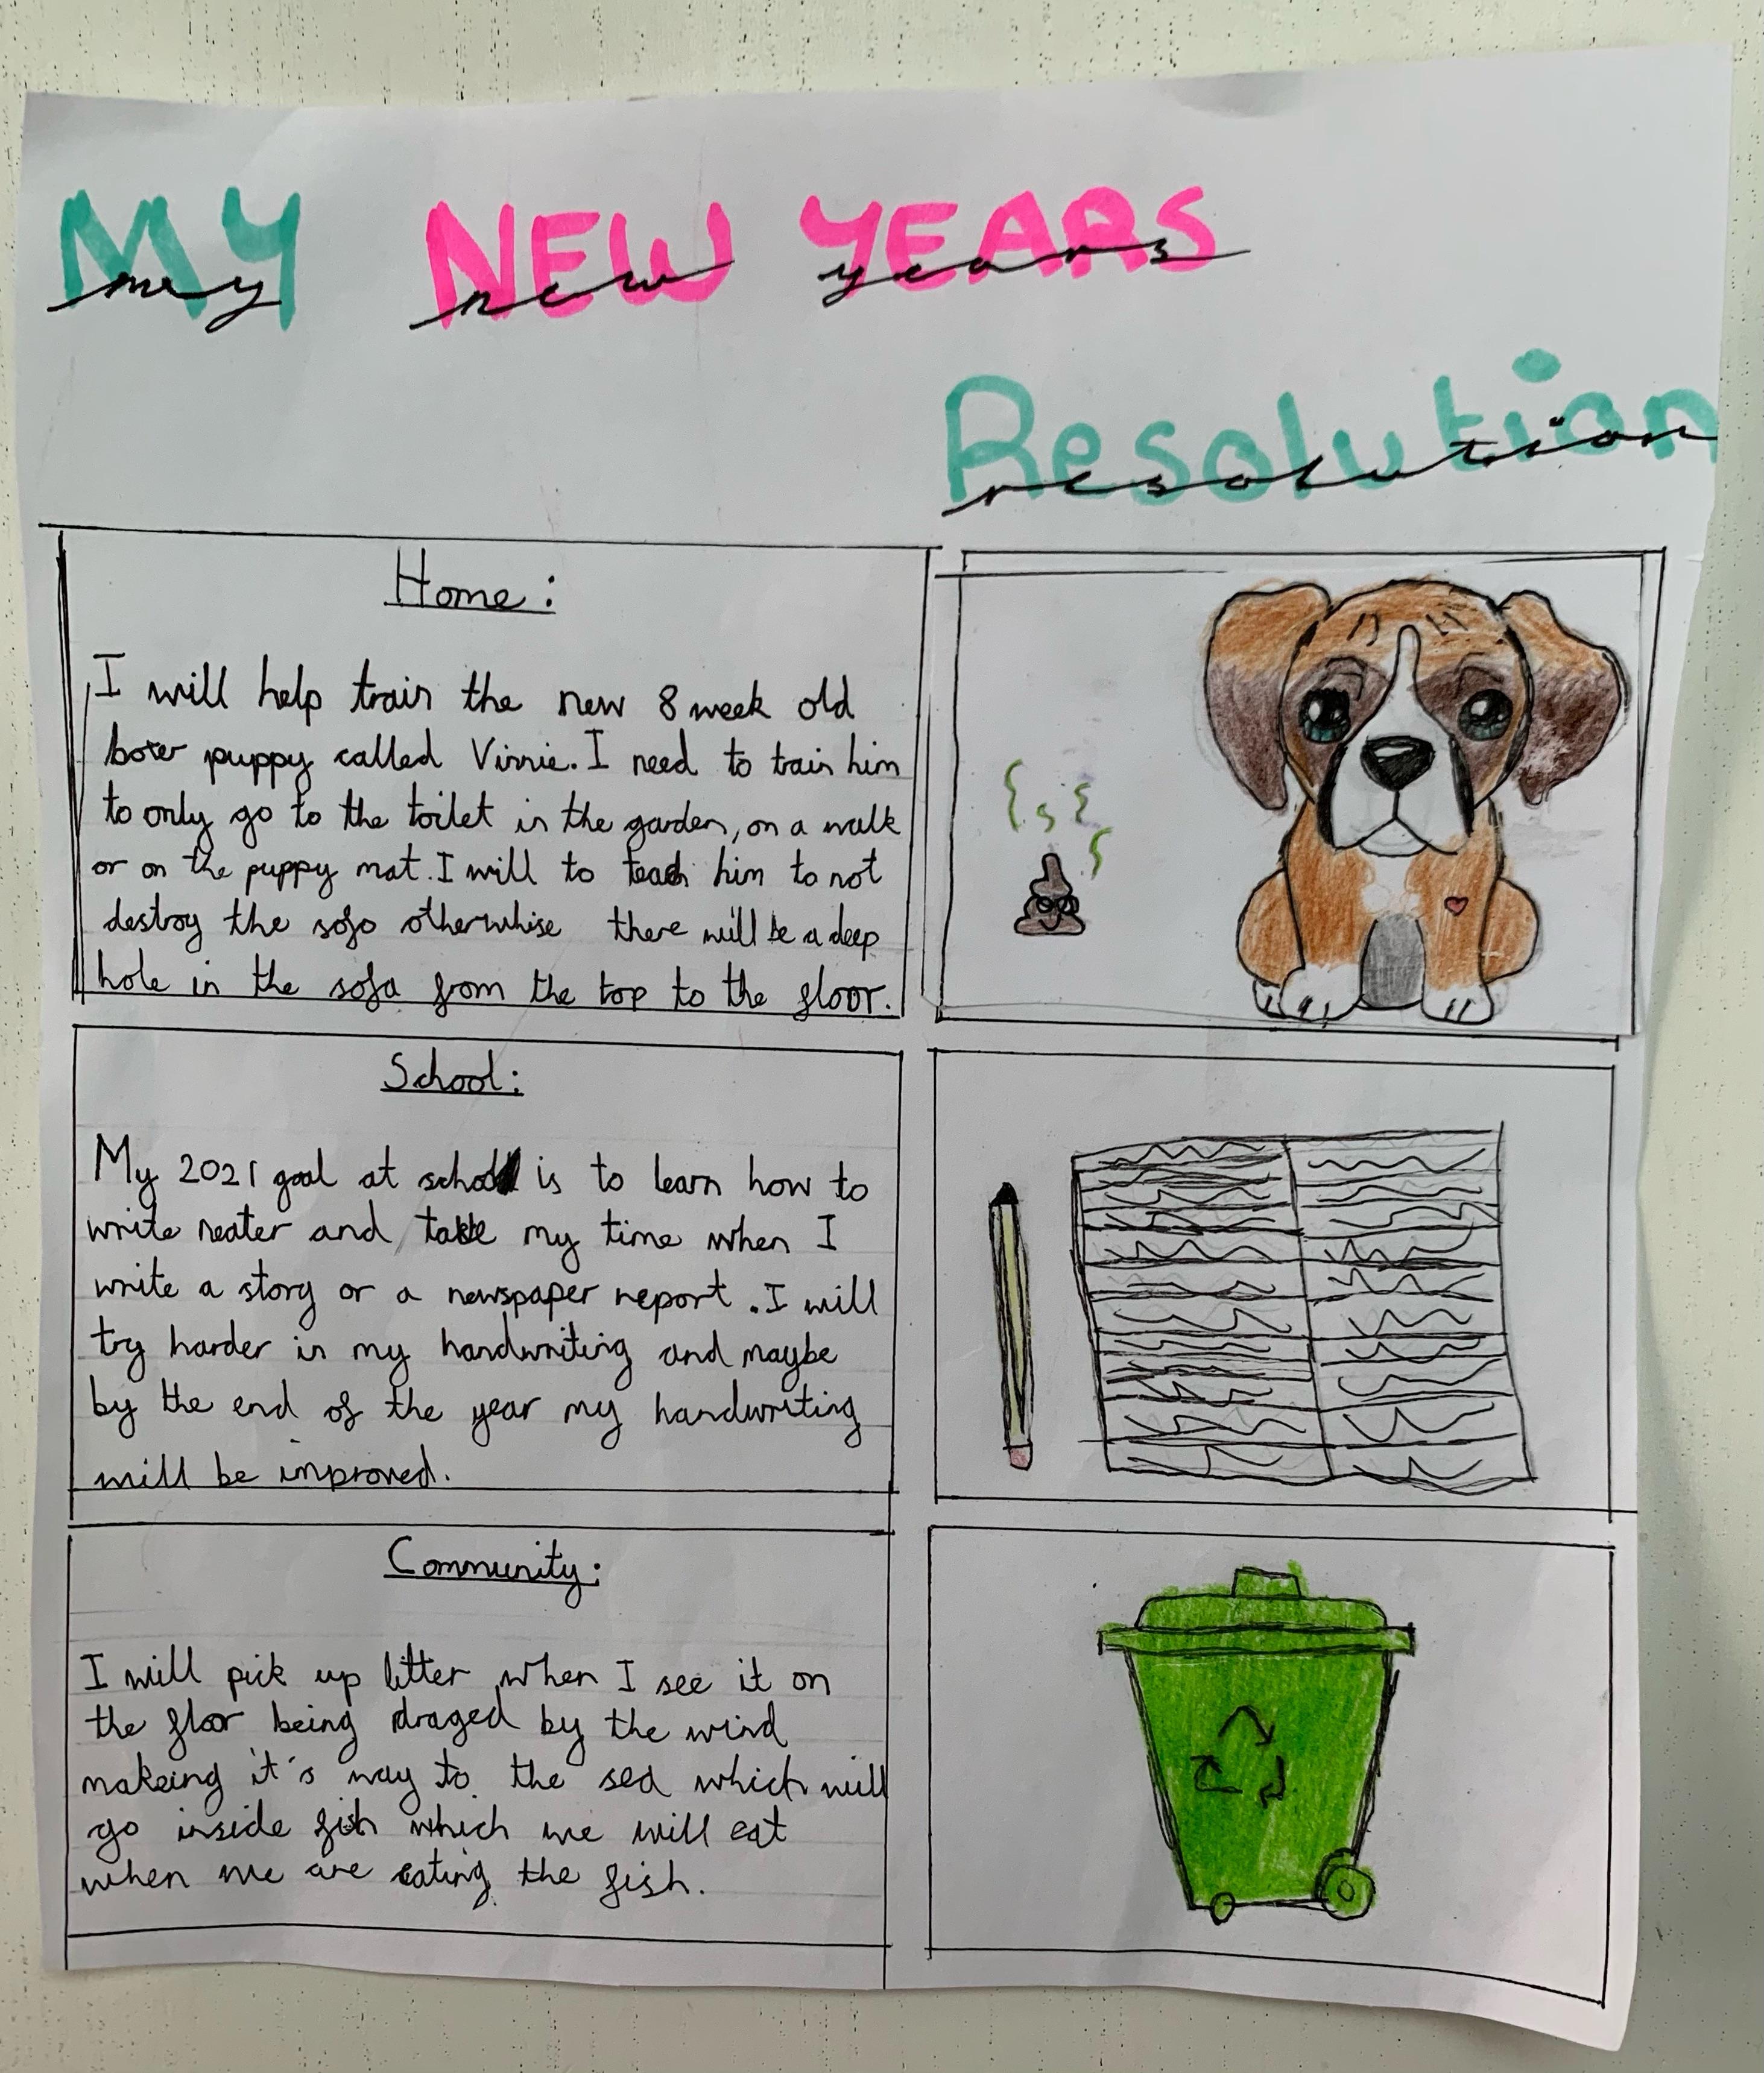 MY NEW YEARS
my new years
Resolution
resolution
Home:
I will help train the new 8 week old
boxer puppy called Vinnie. I need to train him
to only go to the toilet in the garden, on a walk
or on the puppy mat. I will to teach him to not
destroy the sofa otherwhise there will be a deep
hole in the sofa from the top to the floor.
School:
My 2021 goal at school is to learn how to
write neater and take my time when I
write a story or a newspaper report. I will
try harder in my handwriting and maybe
by the end of the year my handwriting
will be improved.
Community:
I will pick up litter when I see it on
the floor being draged by the wind
makeing it's way to the sea which will
go inside fish which we will eat
when we are eating the fish.